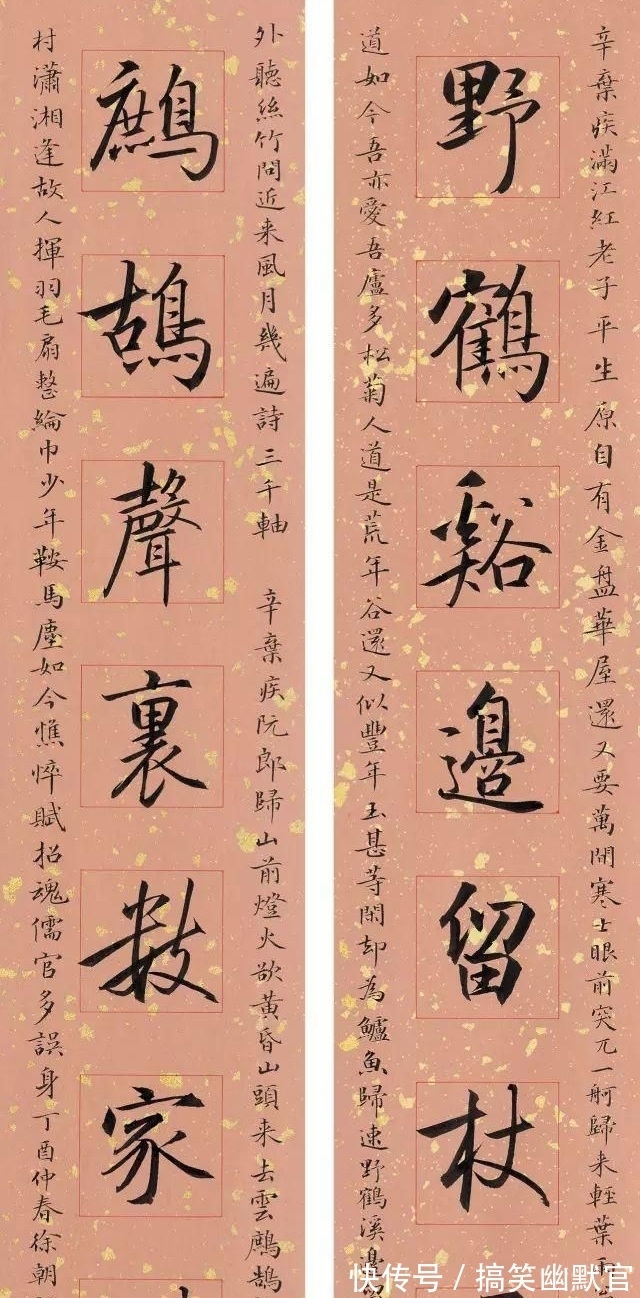 辛棄疾滿江紅老子平生原自有金盤華屋還又要萬間寒士眼前突兀一舸歸来輕葉兩
野鶴谿邊留杖
道如今吾亦愛吾廬多松菊人道是荒年谷還又似豐年玉甚等閑却為鱸魚歸速野鶴溪邊
外聽絲竹問近来風月幾遍詩三千軸 辛棄疾阮郎歸山前燈火欲黄昏山頭来去雲鷓鴣
鷓鴣聲裏數家
村瀟湘逢故人揮羽毛扇整綸巾少年鞍馬塵如今憔悴賦招魂儒官多誤身丁酉仲春徐朝
快传号/搞笑幽默官